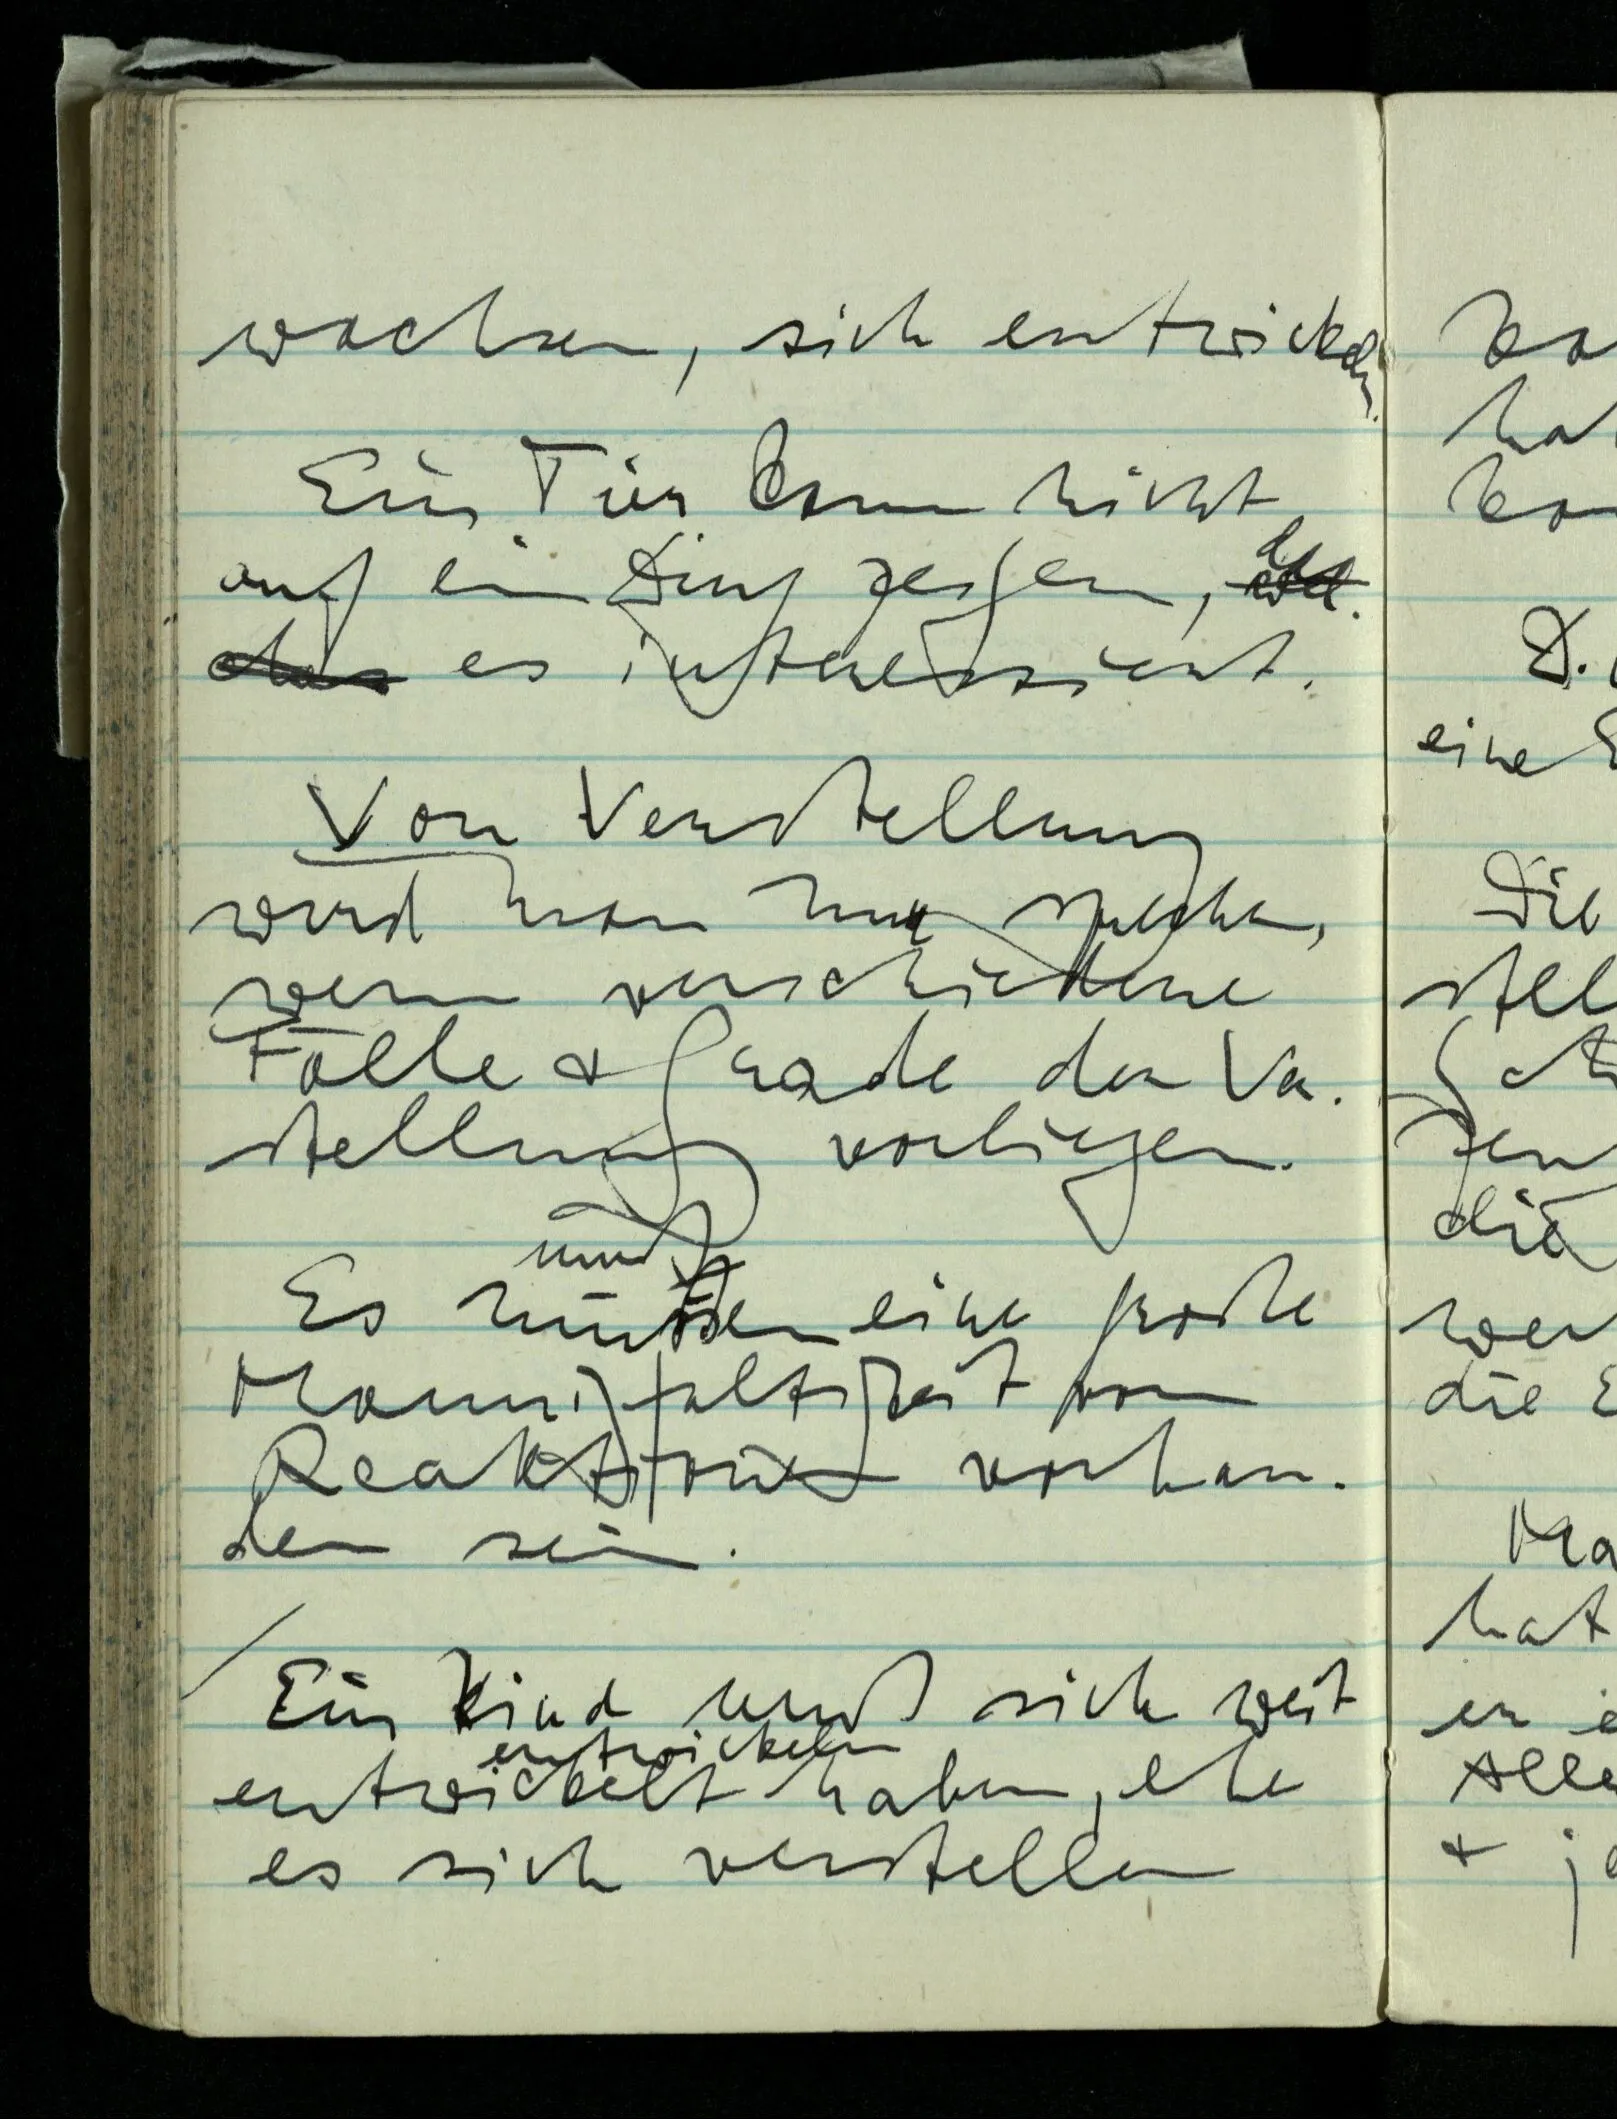 wachsen, sich entwickeln.
Ein Tier kann nicht
auf ein Ding zeigen,
das es interessiert.
Von Verstellung
wird man nur sprechen,
wenn verschiedene
Fälle & Grade der Ver-
stellung vorliegen.
muß
Es müssen eine große
Mannigfaltigkeit von
Reaktionen vorhan-
den sein.
/
Ein Kind muß sich weit
entwickeln
entwickelt haben, ehe
es sich verstellen
ha
D.
eine
Die
stell
die
wer
die E
Ma
hat
er e
Alle
& ja